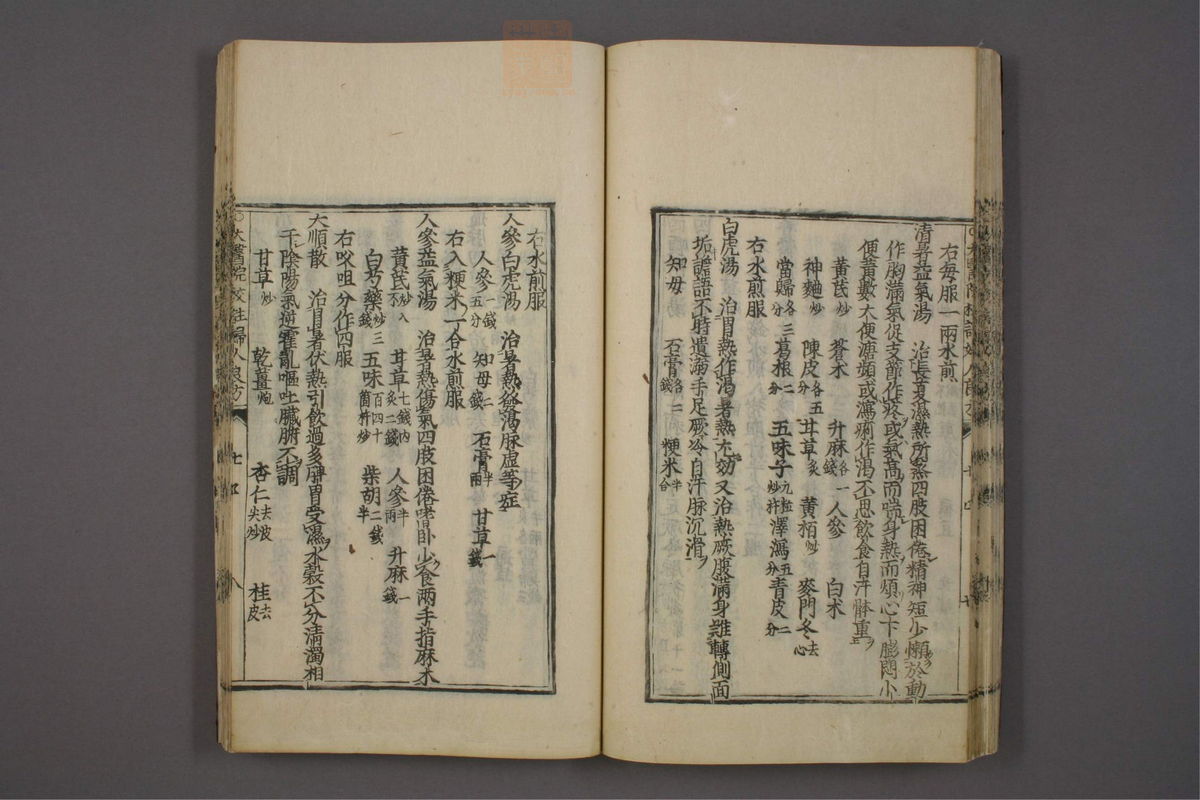 右每服一兩水煎
清暑益氣湯 治長夏濕熱所蒸四肢困倦精神短少懶於動
作胸滿氣促支節作疼或氣高而喘身熱而煩心下膨悶小
便黃數大便溏頻或瀉痢作渴不思飲食自汗體重
黃芪炒 蒼朮 升麻各一錢 人參 白朮
神麯炒 陳皮各五分 甘草炙 黃栢炒 麥門冬去心
當歸各三分 葛根二分 五味子九粒杵炒 澤瀉五分 青皮二分
右水煎服
白虎湯 治胃熱作渴暑熱尤効又治熱厥腹滿身難轉側面
垢譫語不時遺溺手足厥冷自汗脉沉滑
知母 石膏各二錢 粳米半合
右水煎服
人參白虎湯 治暑熱發渴脉虛等症
人參五分錢 知母二 石膏半兩 甘草一錢
右入粳米一合水煎服
人參益氣湯 治暑熱傷氣四肢困倦嗜卧少食兩手指麻木
黃芪炒八 甘草七錢內炙二錢 人參半兩 升麻一錢
白芍藥炒三錢 五味百四十箇杵炒 柴胡二錢半
右㕮咀分作四服
大順散 治冒暑伏熱引飲過多脾胃受濕水穀不分清濁相
干陰陽氣逆霍亂嘔吐臟腑不調
甘草炒 乾薑炮 杏仁去皮尖炒 桂去皮
太醫院校註婦人良方 七 八